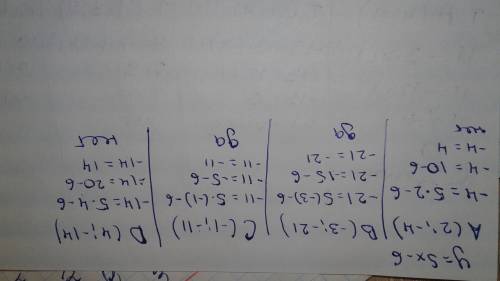 y=5x-6
A(2;-4)
-4=5·2-6
-4=10-6
-4=4
нет
B(-3;-21)
-21=5·(-3)-6
-21=-15-6
-21=-21
да
C(-1;-11)
-11=5·(-1)-6
-11=-5-6
-11=-11
да
D(4;-14)
-14=5·4-6
-14=20-6
-14=14
нет